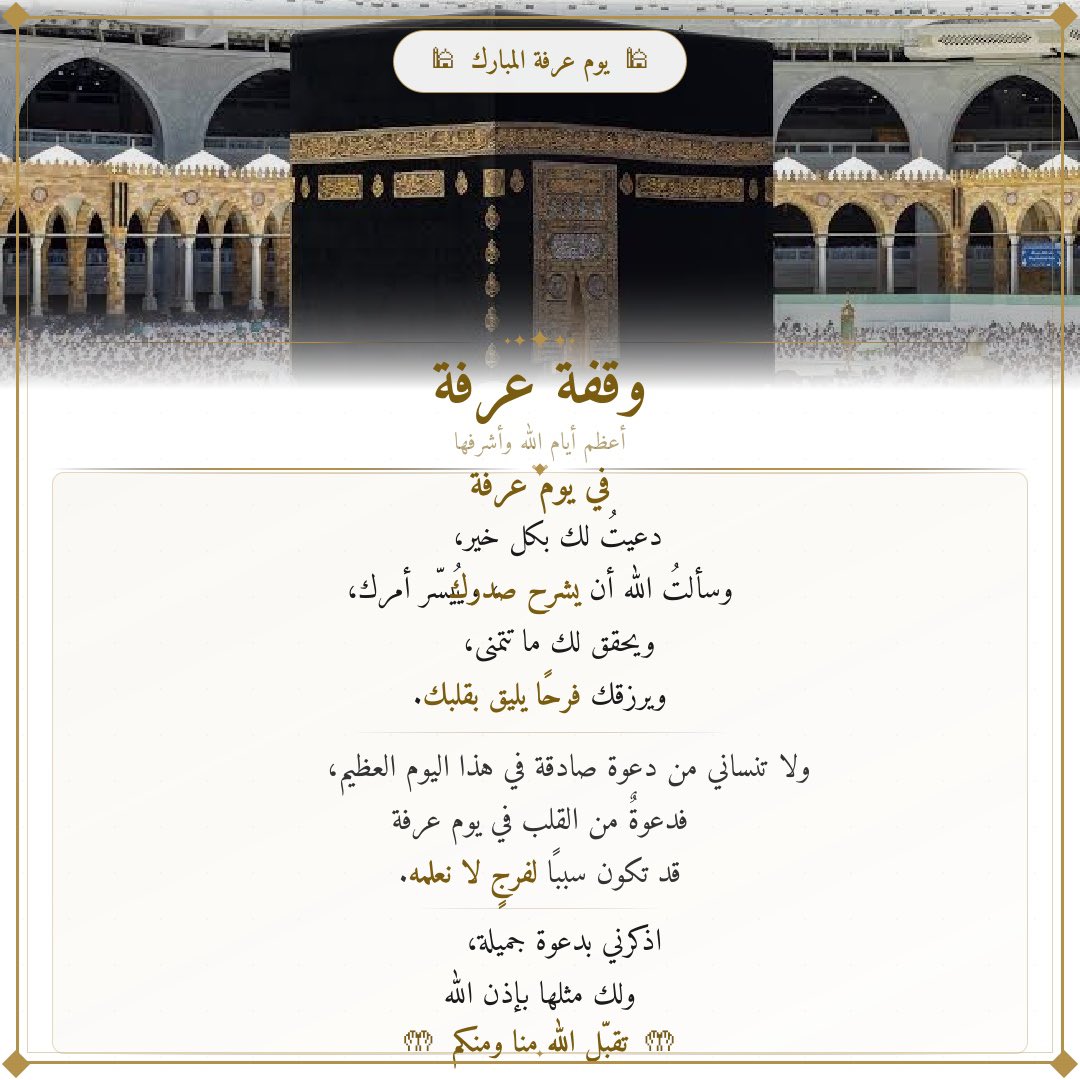 يوم عرفة المبارك
وقفة عرفة
أعظم أيام الله وأشرفها
في يوم عرفة
دعيتُ لك بكل خير،
وسألتُ الله أن يشرح صدرك ويُيسّر أمرك،
ويحقق لك ما تتمنى،
ويرزقك فرحًا يليق بقلبك.
ولا تنساني من دعوة صادقة في هذا اليوم العظيم،
فدعوةٌ من القلب في يوم عرفة
قد تكون سببًا لفرجٍ لا نعلمه.
اذكرني بدعوة جميلة،
ولك مثلها بإذن الله
🤲 تقبّل الله منا ومنكم 🤲